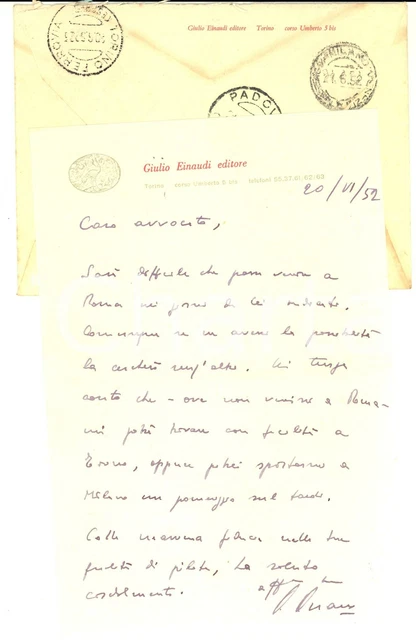 Giulio Einaudi editore Torino corso Umberto 5 bis
TORINO FERROVIA
PADO
MILANO
21.6.52
Giulio Einaudi editore
Torino corso Umberto 5 bis telefoni
20/VI/52
Caro avvocato,
Sarà difficile che possa venire a
Roma nei giorni da lei indicati.
Comunque se ne avessi la possibilità
la cercherò senz'altro. Lei tenga
conto che - ove non venissi a Roma -
mi potrà trovare con facilità a
Torino, oppure potrei spostarmi a
Milano un pomeriggio sul tardi.
Colla massima fiducia nelle sue
qualità di pilota, la saluto
cordialmente.